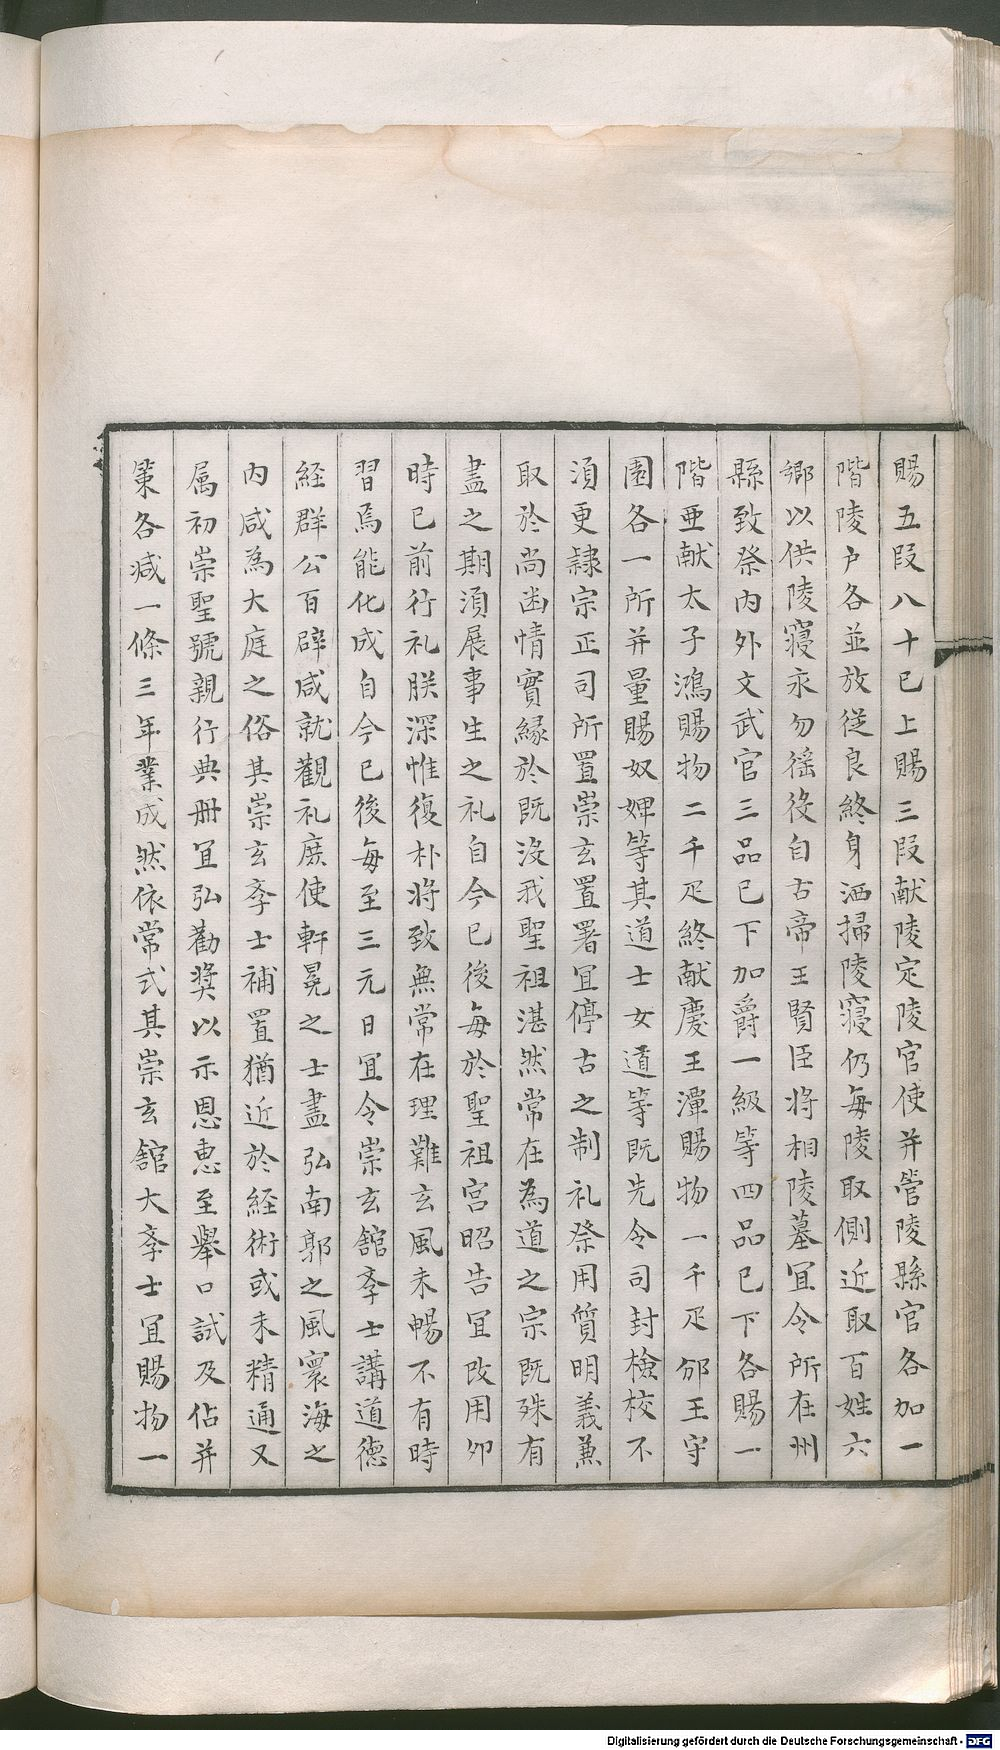 賜五叚八十已上賜三叚献陵定陵官使并營陵縣官各加一
階陵户各並放従良終身洒掃陵寝仍每陵取側近取百姓六
鄉以供陵寝永勿徭役自古帝王賢臣将相陵墓宜令所在州
縣致祭內外文武官三品已下加爵一級等四品已下各賜一
階亜献太子鴻賜物二千疋終献慶王潭賜物一千疋邠王守
園各一所并量賜奴婢等其道士女道等既先令司封檢校不
湏更隸宗正司所置崇玄置署宜停古之制礼祭用質明義兼
取於尚凾情實縁於既沒我聖祖湛然常在為道之宗既殊有
盡之期湏展事生之礼自今已後每於聖祖宮昭告宜改用夘
時已前行礼朕深惟復朴将致無常在理難玄風未暢不有時
習焉能化成自今已後每至三元日宜令崇玄舘斈士講道德
経群公百辟咸就觀礼庶使軒冕之士盡弘南郭之風寰海之
內咸為大庭之俗其崇玄斈士補置猶近於経術或未精通又
属初崇聖號親行典冊宜弘勸奨以示恩恵至舉口試及佔并
策各减一條三年業成然依常式其崇玄舘大斈士宜賜物一
Digitalisierung gefördert durch die Deutsche Forschungsgemeinschaft - DFG